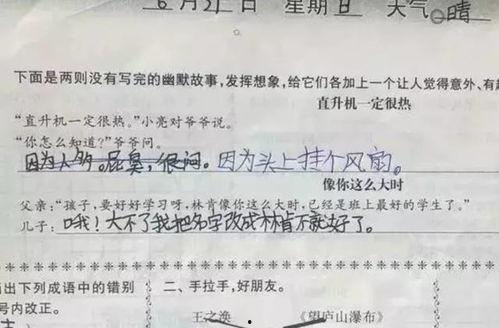 6月21日 星期日 天气 晴
下面是两则没有写完的幽默故事,发挥想象,给它们各加上一个让人觉得意外、有
直升机一定很热
“直升机一定很热。”小亮对爷爷说。
“你怎么知道?”爷爷问。
因为人多。屁臭,很闷。因为头上挂个风扇。
像你这么大时
父亲:“孩子,要好好学习呀,林肯像你这么大时,已经是班上最好的学生了。”
儿子:哦!大不了我把名字改成林肯不就好了。
出下列成语中的错别
号内改正。
二、手拉手,好朋友。
王之涣 《望庐山瀑布》